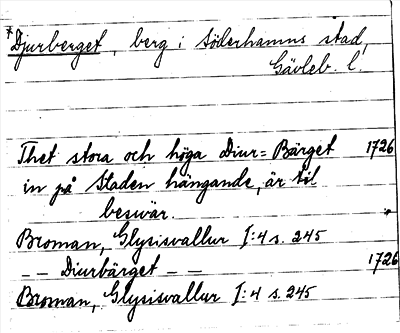 *Djurberget, berg i Söderhamns stad,
Gävleb. l.
Thet stora och höga Diur=Bärget 1726
in på Staden hängande, är til
beswär.
Broman, Glysisvallur I:4 s. 245
-- Diurbärget -- 1726
Broman, Glysisvallur I:4 s. 245